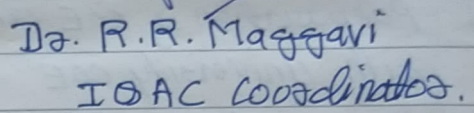 Dr. R.R. Maggavi
IQAC Coordinator.